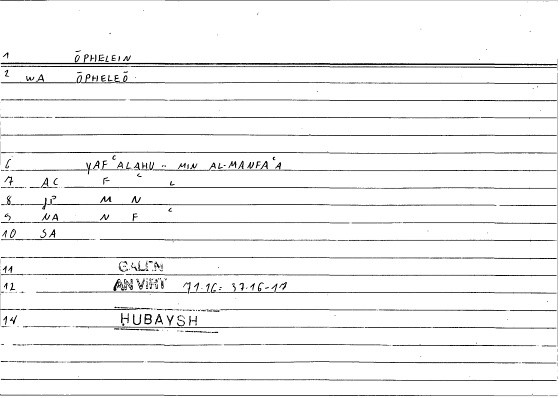 1 ŌPHELEIN
2 WA ŌPHELEŌ
6 YAFʿALAHU .. MIN AL-MANFAʿA
7 AC F ʿ L
8 JP M N
9 NA N F ʿ
10 SA
11 GALEN
12 AN VIRT 71.16: 37.16-17
14 HUBAYSH